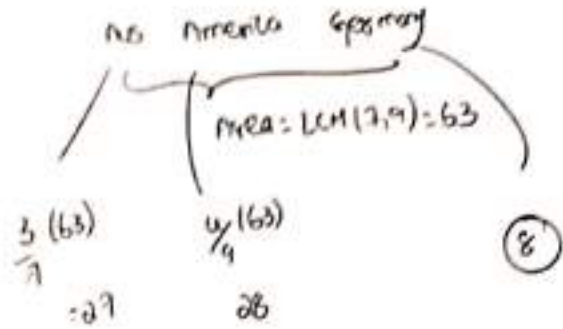 America Germany
Area = LCM(7,9) = 63
3/7 (63) 4/9 (63) 8
= 27 28